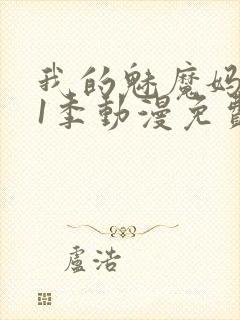 我的魅魔妈
1季動漫免費
盧浩